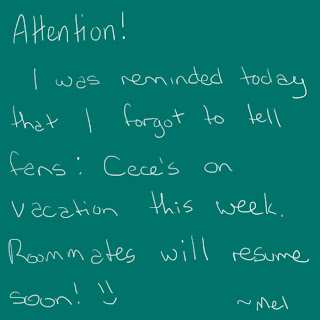 Attention!
I was reminded today
that I forgot to tell
fans: Cece's on
vacation this week.
Roommates will resume
soon! :)
~Mel